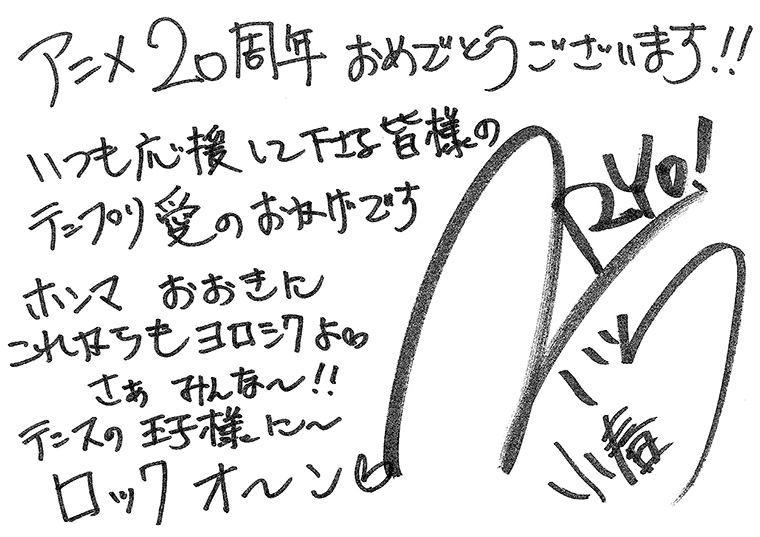 アニメ20周年 おめでとうございます!!
いつも応援して下さる皆様の
テニプリ愛のおかげです
ホンマ おおきに
これからもヨロシクよ♡
さぁ みんな〜!!
テニスの王子様に〜
ロックオ〜ン♡
RYO!
小春